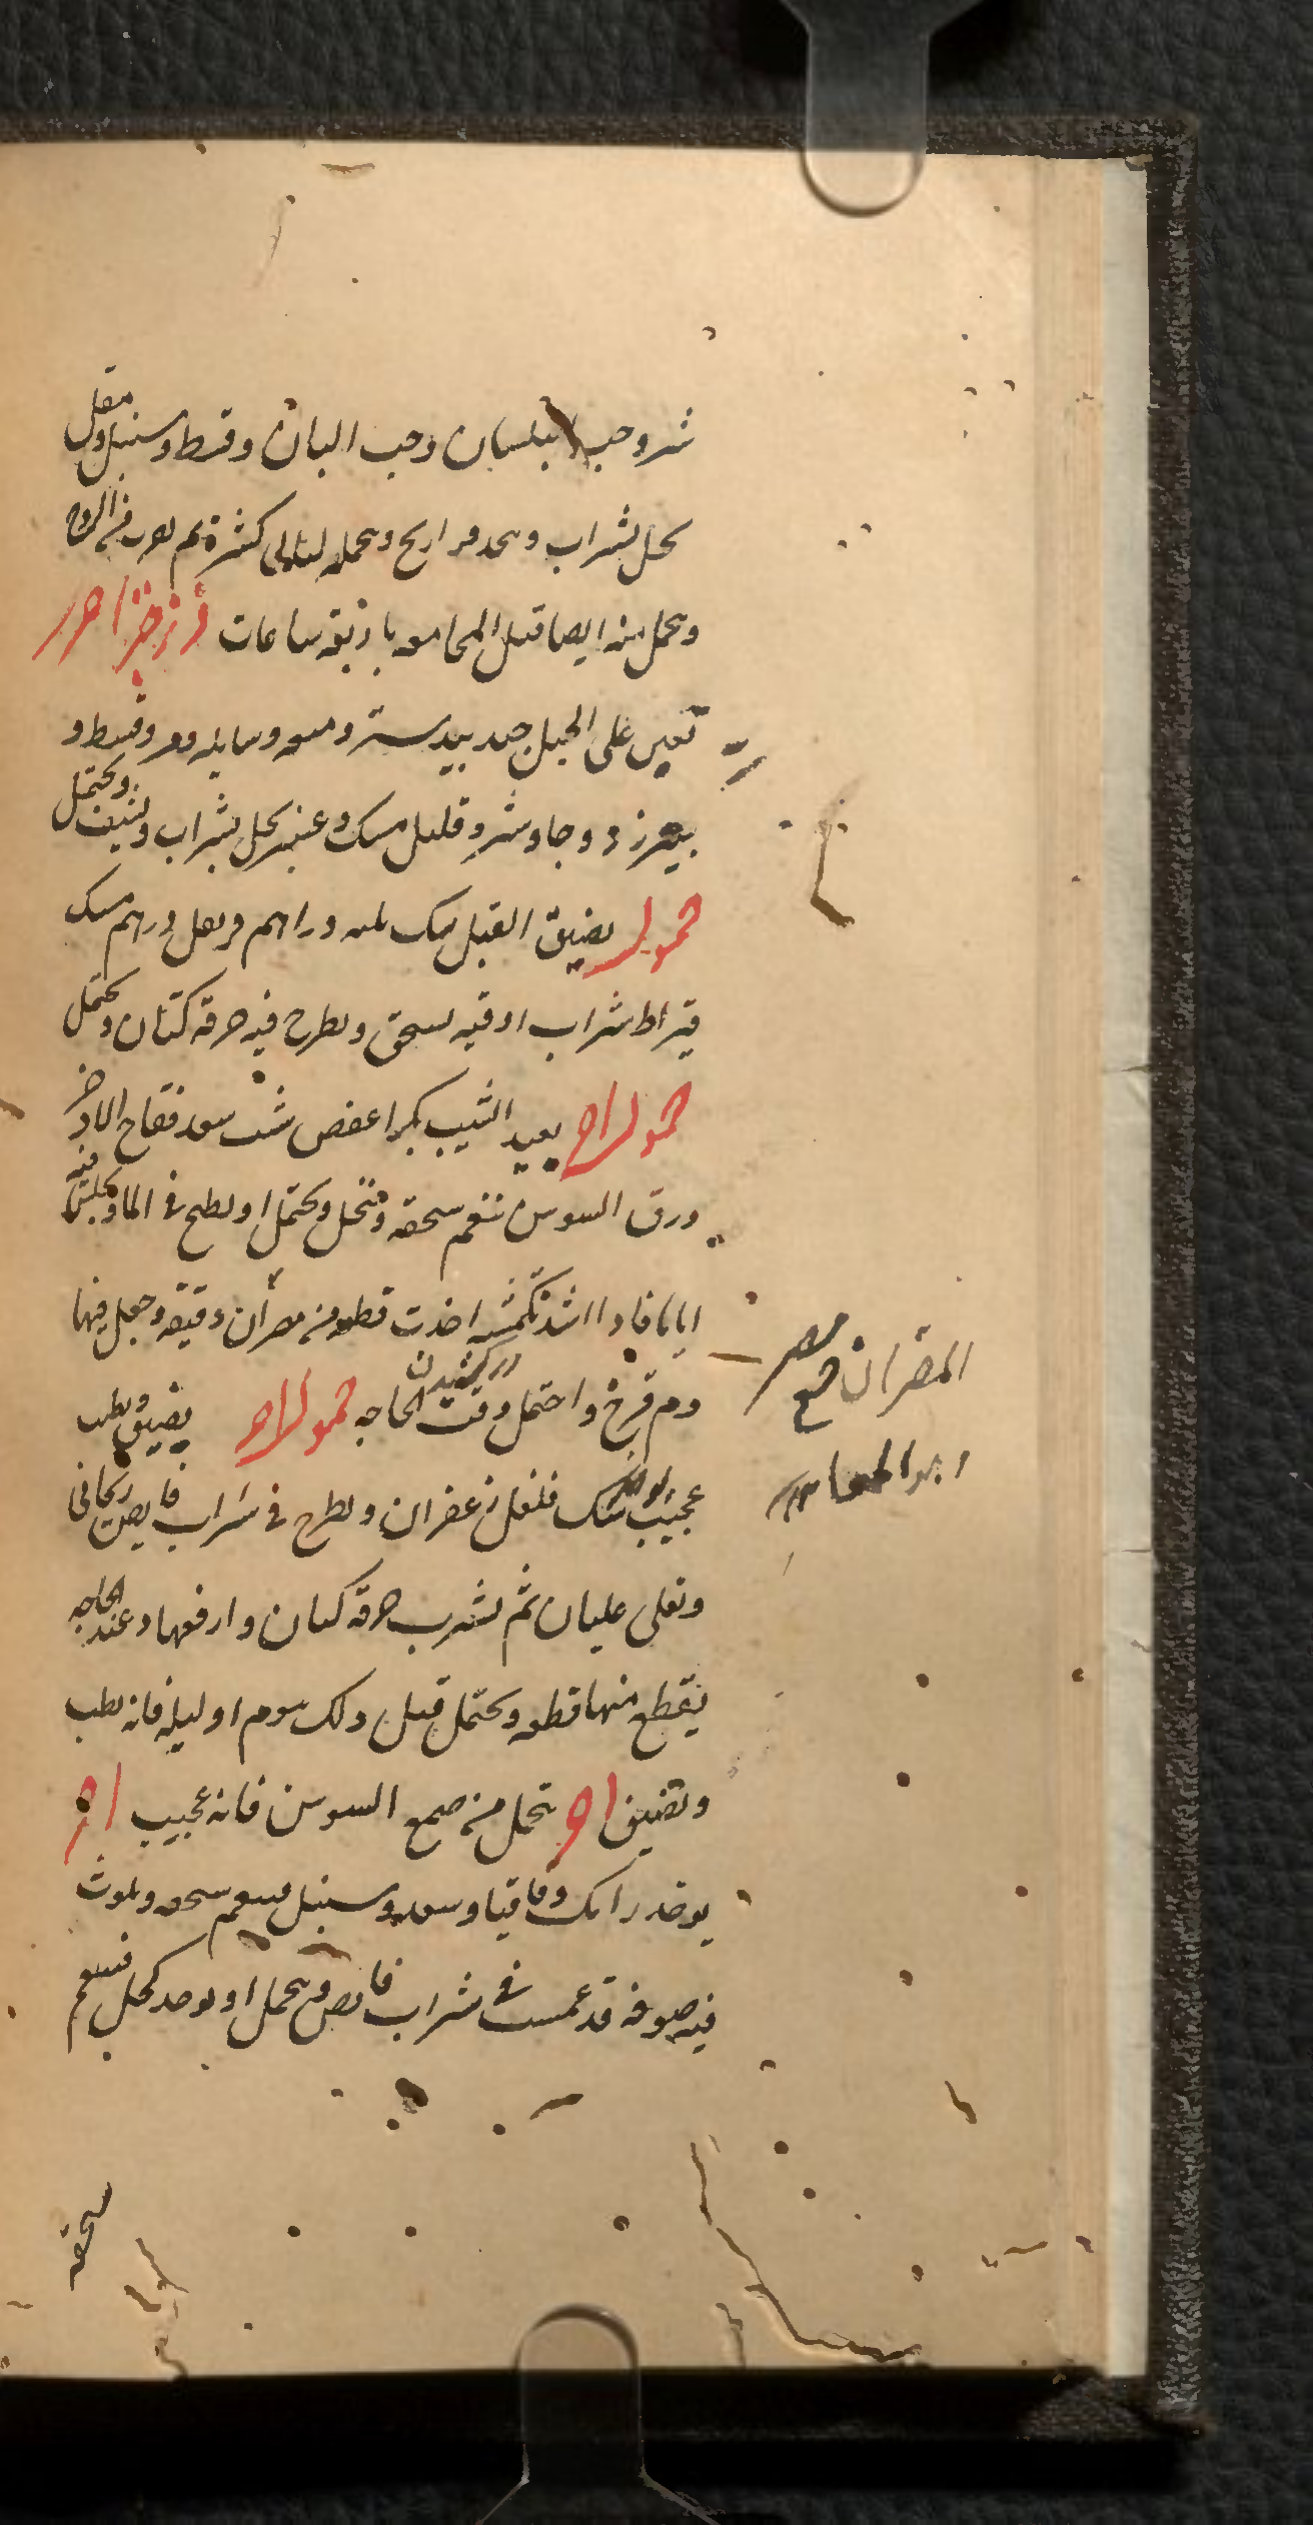 شر وحب البلسان وحب البان وقسط وسنبل ومقل
يحل بشراب ويحمله ليالي كثيرة ثم يقرب منه الزوج
ويحمل منه ايضا قبل المجامعه باربعة ساعات فرزجة اخرى
تعين على الحبل جندبيدستر وميعه وسايله ومر وقسط و
بيرزد وجاوشير وقليل مسك وعنبر يحل بشراب ويشيف ويحتمل
حمول يضيق القبل سك ثلثه دراهم قرنفل درهم مسك
قيراط شراب اوقيه يسحق ويطرح فيه خرقة كتان ويحتمل
حمول اخر يعيد الثيب بكرا عفص شب سعد فقاح الاذخر
ورق السوسن ينعم سحقه وينخل ويحتمل او يطبخ في الماء ويجلس فيه
اياما فاذا اشتد تكمشه اخذت قطعه من مصران دقيقه وجعل فيها
دم فرخ واحتمل وقت الحاجه حمول اخر يضيق ويطيب
عجيب سك فلفل زعفران ويطرح في شراب قابض ريحاني
ويغلى غليان ثم يشرب خرقة كتان وارفعها وعند الحاجه
يقطع منها قطعه ويحتمل قبل ذلك بيوم او ليله فانه يطيب
ويضيق اخر يتحمل من صمغ السوسن فانه عجيب اخر
يوخذ رامك وقاقيا وسعد وسنبل ينعم سحقه ويلوث
فيه صوفه قد غمست في شراب قابض ويحمل او يوخذ كحل فينعم
سحقه
المصران جمع مصير